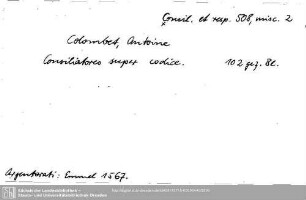 Consil. et resp. 508, misc. 2
Colombet, Antoine
Consiliatores super codice. 102 gez. Bl.
Argentorati: Emmel 1567.
Sächsische Landesbibliothek -
Staats- und Universitätsbibliothek Dresden